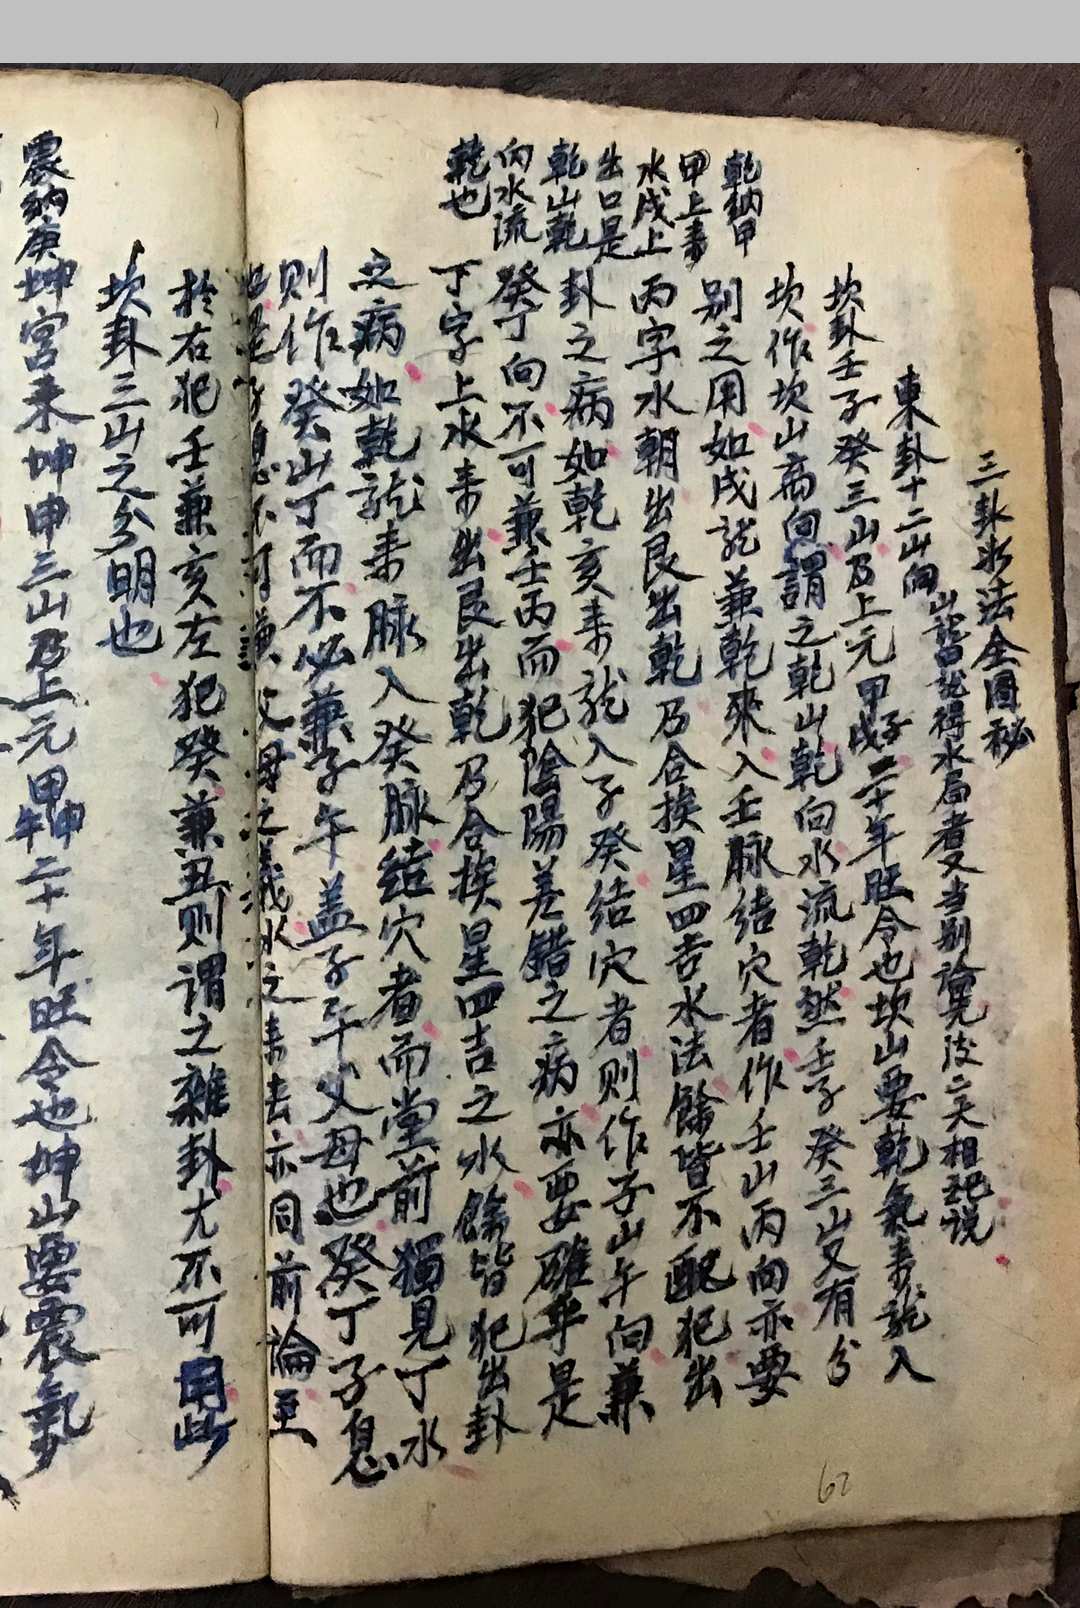 三卦水法全圖秘
東卦十二山向
山龍得水局者又当别論
坎卦壬子癸三山乃上元甲子甲戌二十年旺令也坎山要乾氣来龍入
坎作坎山离向謂之乾山乾向水流乾然壬子癸三山又有分
别之用如戌龍兼乾來入壬脉结穴者作壬山丙向亦要
丙字水朝出艮出乾乃合挨星四吉水法餘皆不配犯出
卦之病如乾亥来龍入子癸结穴者则作子山午向兼
癸丁向不可兼壬丙而犯陰陽差錯之病亦要確乎是
丁字上水来出艮出乾乃合挨星四吉之水餘皆犯出卦
之病如乾龍来脉入癸脉结穴者而堂前獨見丁水
则作癸山丁而不必兼子午盖子午父母也癸丁子息
也是子息不可兼父母之義水之来去亦同前論至
於右犯壬兼亥左犯癸兼丑则謂之雜卦尤不可用此
坎卦三山之分明也
乾納甲
甲上来
水戌上
出口是
乾山乾
向水流
乾也
震納庚
坤宮未坤申三山乃上元甲申甲午二十年旺令也坤山要震氣
62